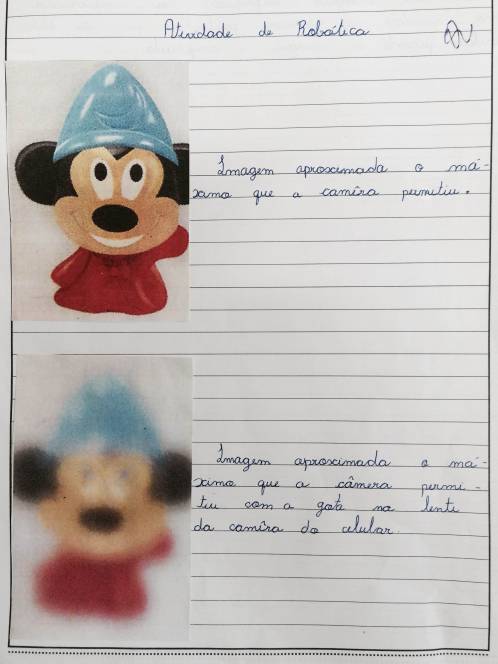 Atividade de Robótica
Imagem aproximada o má-
ximo que a camêra permitiu.
Imagem aproximada o má-
ximo que a câmera permi-
tiu com a gota na lente
da camêra do celular.